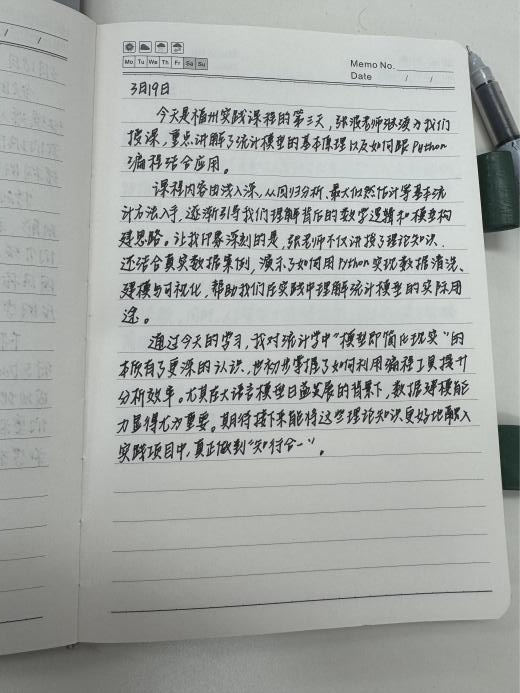 Mo Tu We Th Fr Sa Su
Memo No.
Date / /
3月19日
今天是福州实践课程的第三天,张浪老师继续为我们
授课,重点讲解了统计模型的基本原理以及如何跟Python
编程结合应用。
课程内容由浅入深,从回归分析、最大似然估计等基本统
计方法入手,逐渐引导我们理解背后的数学逻辑和模型构
建思路。让我印象深刻的是,张老师不仅讲授了理论知识,
还结合真实数据案例,演示了如何用Python实现数据清洗、
建模与可视化,帮助我们在实践中理解统计模型的实际用
途。
通过今天的学习,我对统计学中“模型即简化现实”的
本质有了更深的认识,也初步掌握了如何利用编程工具提升
分析效率。尤其在大语言模型日益发展的背景下,数据建模能
力显得尤为重要。期待接下来能将这些理论知识更好地融入
实践项目中,真正做到“知行合一”。